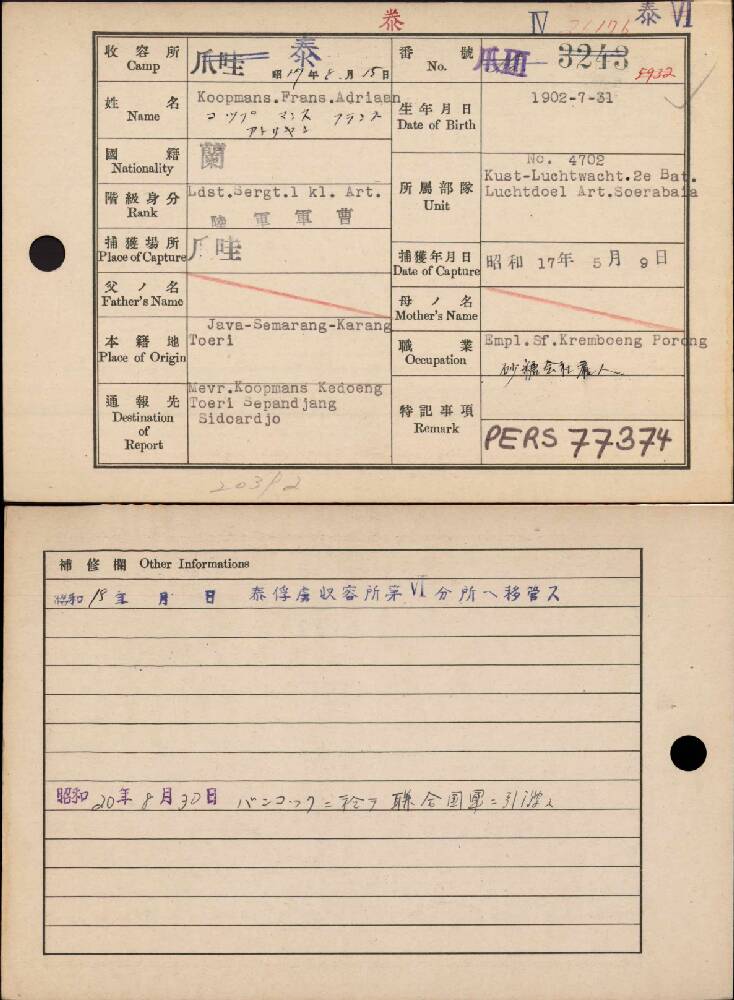 泰
IV 21176 泰 VI
收容所 Camp 爪哇 泰
昭17年8月15日
番號 No. 爪III 3243 5932
姓名 Name Koopmans.Frans.Adriaan
コツプマンス フランス
アドリヤン
生年月日 Date of Birth 1902-7-31
國籍 Nationality 蘭
階級身分 Rank Ldst.Sergt.1 kl. Art.
陸軍軍曹
所屬部隊 Unit No. 4702
Kust-Luchtwacht.2e Bat.
Luchtdoel Art.Soerabaia
捕獲場所 Place of Capture 爪哇
捕獲年月日 Date of Capture 昭和 17年 5月 9日
父ノ名 Father's Name
母ノ名 Mother's Name
本籍地 Place of Origin Java-Semarang-Karang
Toeri
職業 Occupation Empl.Sf.Kremboeng Porong
砂糖会社雇人
通報先 Destination of Report Mevr.Koopmans Kedoeng
Toeri Sepandjang
Sidoardjo
特記事項 Remark PERS 77374
203/2
補修欄 Other Informations
昭和 18年 月 日 泰俘虜収容所第VI分所ヘ移管ス
昭和20年8月30日 バンコックニ於テ聯合国軍ニ引渡ス